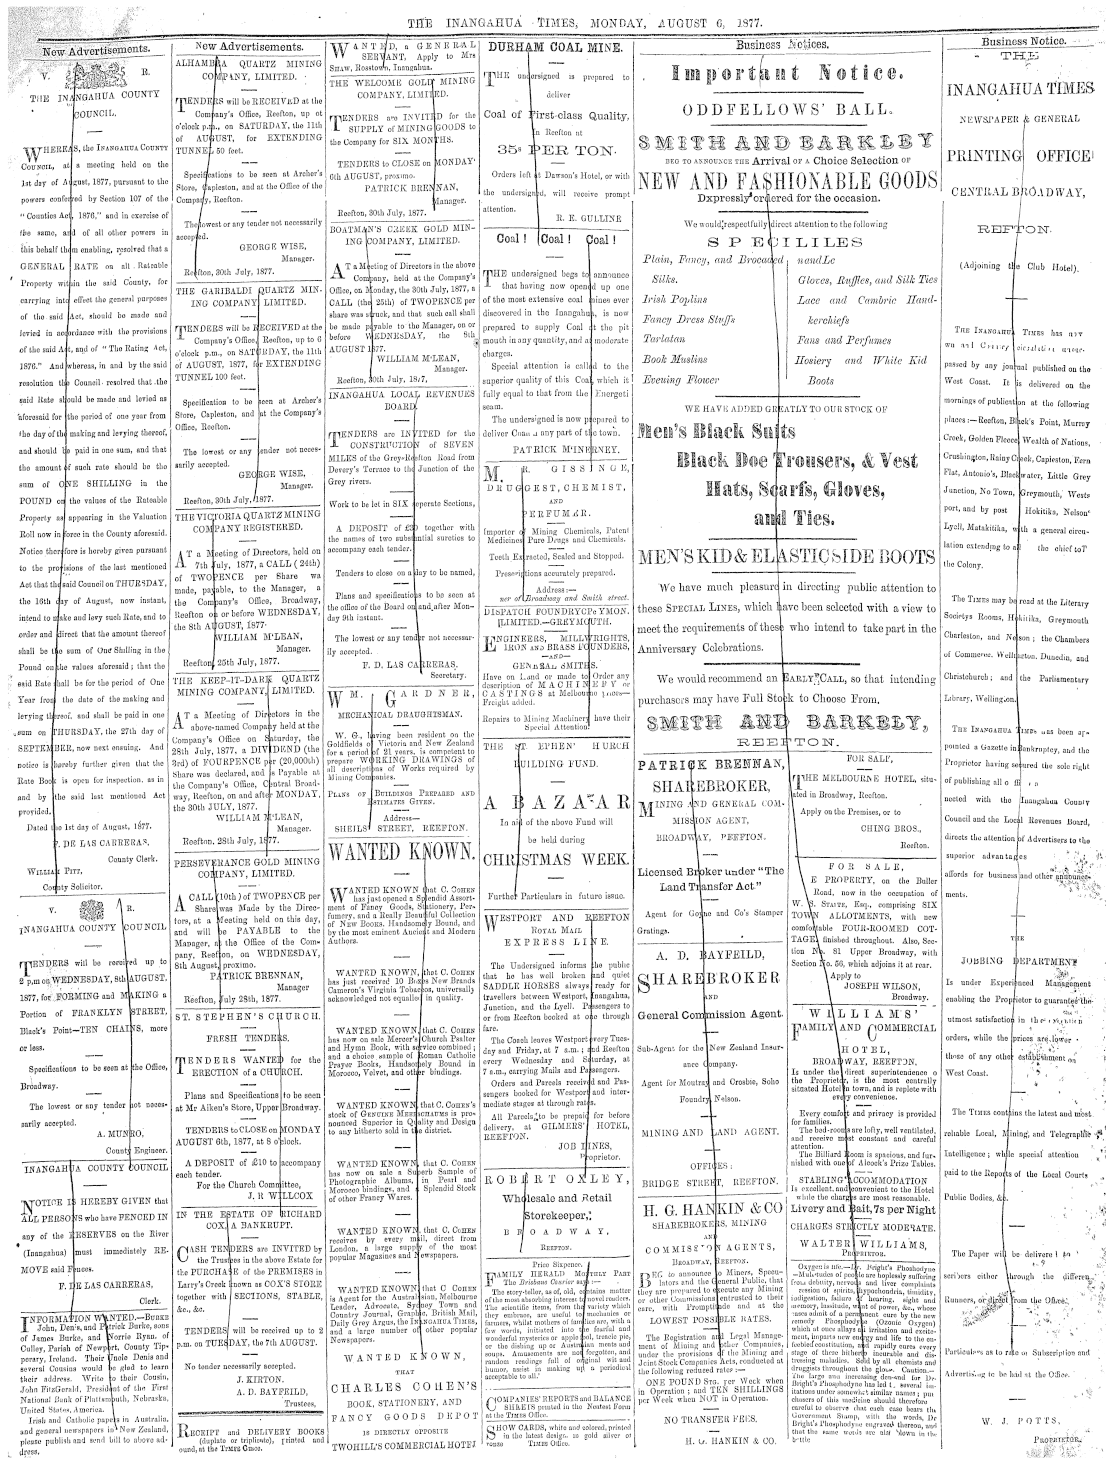 THE INANGAHUA TIMES, MONDAY, AUGUST 6, 1877.
New Advertisements.
V. R.
THE INANGAHUA COUNTY
COUNCIL.
WHEREAS, the INANGAHUA COUNTY
COUNCIL, at a meeting held on the
1st day of August, 1877, pursuant to the
powers conferred by Section 107 of the
"Counties Act, 1876," and in exercise of
the same, and of all other powers in
this behalf them enabling, resolved that a
GENERAL RATE on all Rateable
Property within the said County, for
carrying into effect the general purposes
of the said Act, should be made and
levied in accordance with the provisions
of the said Act, and of "The Rating Act,
1876." And whereas, in and by the said
resolution the Council resolved that the
said Rate should be made and levied as
aforesaid for the period of one year from
the day of the making and levying thereof,
and should be paid in one sum, and that
the amount of such rate should be the
sum of ONE SHILLING in the
POUND on the values of the Rateable
Property as appearing in the Valuation
Roll now in force in the County aforesaid.
Notice therefore is hereby given pursuant
to the provisions of the last mentioned
Act that the said Council on THURSDAY,
the 16th day of August, now instant,
intend to make and levy such Rate, and to
order and direct that the amount thereof
shall be the sum of One Shilling in the
Pound on the values aforesaid; that the
said Rate shall be for the period of One
Year from the date of the making and
lerying thereof, and shall be paid in one
sum on THURSDAY, the 27th day of
SEPTEMBER, now next ensuing. And
notice is hereby further given that the
Rate Book is open for inspection, as in
and by the said last mentioned Act
provided.
Dated the 1st day of August, 1877.
F. DE LAS CARRERAS,
County Clerk.
WILLIAM PITT,
County Solicitor.
V. R.
INANGAHUA COUNTY COUNCIL
TENDERS will be received up to
2 p.m on WEDNESDAY, 8th AUGUST,
1877, for FORMING and MAKING a
Portion of FRANKLYN STREET,
Black's Point—TEN CHAINS, more
or less.
Specifications to be seen at the Office,
Broadway.
The lowest or any tender not neces-
sarily accepted.
A. MUNRO,
County Engineer.
INANGAHUA COUNTY COUNCIL
NOTICE IS HEREBY GIVEN that
ALL PERSONS who have FENCED IN
any of the RESERVES on the River
(Inangahua) must immediately RE-
MOVE said Fences.
F. DE LAS CARRERAS,
Clerk.
INFORMATION WANTED.—BURKE
John, Denis, and Patrick Burke, sons
of James Burke, and Norrie Ryan, of
Culley, Parish of Newport, County Tip-
perary, Ireland. Their Uncle Denis and
several Cousins would be glad to learn
their address. Write to their Cousin,
John FitzGerald, President of the First
National Bank of Plattsmouth, Nebraska,
United States, America.
Irish and Catholic papers in Australia,
and general newspapers in New Zealand,
please publish and send bill to above ad-
dress.
New Advertisements.
ALHAMBRA QUARTZ MINING
COMPANY, LIMITED.
TENDERS will be RECEIVED at the
Company's Office, Reefton, up ot
o'clock p.m., on SATURDAY, the 11th
of AUGUST, for EXTENDING
TUNNEL 50 feet.
Specifications to be seen at Archer's
Store, Capleston, and at the Office of the
Company, Reefton.
The lowest or any tender not necessarily
accepted.
GEORGE WISE,
Manager.
Reefton, 30th July, 1877.
THE GARIBALDI QUARTZ MIN-
ING COMPANY LIMITED.
TENDERS will be RECEIVED at the
Company's Office, Reefton, up to 6
o'clock p.m., on SATURDAY, the 11th
of AUGUST, 1877, for EXTENDING
TUNNEL 100 feet.
Specification to be seen at Archer's
Store, Capleston, and at the Company's
Office, Reefton.
The lowest or any tender not neces-
sarily accepted.
GEORGE WISE,
Manager.
Reefton, 30th July, 1877.
THE VICTORIA QUARTZ MINING
COMPANY REGISTERED.
AT a Meeting of Directors, held on
7th July, 1877, a CALL (24th)
of TWOPENCE per Share wa
made, payable, to the Manager, a
the Company's Office, Broadway,
Reefton on or before WEDNESDAY,
the 8th AUGUST, 1877.
WILLIAM M'LEAN,
Manager.
Reefton, 25th July, 1877.
THE KEEP-IT-DARK QUARTZ
MINING COMPANY, LIMITED.
AT a Meeting of Directors in the
above-named Company held at the
Company's Office on Saturday, the
28th July, 1877, a DIVIDEND (the
3rd) of FOURPENCE per (20,000th)
Share was declared, and is Payable at
the Company's Office, Central Broad-
way, Reefton, on and after MONDAY,
the 30th JULY, 1877.
WILLIAM M'LEAN,
Manager.
Reefton, 28th July, 1877.
PERSEVERANCE GOLD MINING
COMPANY, LIMITED.
A CALL (10th) of TWOPENCE per
Share was Made by the Direc-
tors, at a Meeting held on this day,
and will be PAYABLE to the
Mapager, at the Office of the Com-
pany, Reefton, on WEDNESDAY,
8th August, proximo.
PATRICK BRENNAN,
Manager
Reefton, July 28th, 1877.
ST. STEPHEN'S CHURCH.
FRESH TENDERS.
TENDERS WANTED for the
ERECTION of a CHURCH.
Plans and Specifications to be seen
at Mr Aiken's Store, Upper Broadway.
TENDERS to CLOSE on MONDAY
AUGUST 6th, 1877, at 8 o'clock.
A DEPOSIT of £10 to accompany
each tender.
For the Church Committee,
J. R WILLCOX
IN THE ESTATE OF RICHARD
COX, A BANKRUPT.
CASH TENDERS are INVITED by
the Trustees in the above Estate for
the PURCHASE of the PREMISES in
Larry's Creek known as COX'S STORE
together with SECTIONS, STABLE,
&c., &c.
TENDERS will be received up to 2
p.m. on TUESDAY, the 7th AUGUST.
No tender necessarily accepted.
J. KIRTON.
A. D. BAYFEILD,
Trustees,
RECEIPT and DELIVERY BOOKS
(duplate or triplicate), printed and
ound, at the TIMES Office.
WANTED, a GENERAL
SERVANT. Apply to Mrs
SHAW, Rosstown, Inangahua.
THE WELCOME GOLD MINING
COMPANY, LIMITED.
TENDERS are INVITED for the
SUPPLY of MINING GOODS to
the Company for SIX MONTHS.
TENDERS to CLOSE on MONDAY
6th AUGUST, proximo.
PATRICK BRENNAN,
Manager.
Reefton, 30th July, 1877.
BOATMAN'S CREEK GOLD MIN-
ING COMPANY, LIMITED.
AT a Meeting of Directors in the above
Company, held at the Company's
Office, on Monday, the 30th July, 1877, a
CALL (the 25th) of TWOPENCE per
share was struck, and that such call shall
be made payable to the Manager, on or
before WEDNESDAY, the 8th
AUGUST 1877.
WILLIAM M'LEAN,
Manager.
Reefton, 30th July, 1877,
INANGAHUA LOCAL REVENUES
BOARD.
TENDERS are INVITED for the
CONSTRUCTION of SEVEN
MILES of the Grey-Reefton Road from
Devery's Terrace to the Junction of the
Grey rivers.
Work to be let in SIX seperate Sections,
A DEPOSIT of £30 together with
the names of two substantial sureties to
accompany each tender.
Tenders to close on a day to be named,
Plans and specifications to be seen at
the office of the Board on and after Mon-
day 9th instant.
The lowest or any tender not necessar-
ily accepted.
F. D. LAS CARRERAS,
Secretary.
WM. GARDNER,
MECHANICAL DRAUGHTSMAN.
W. G., having been resident on the
Goldfields of Victoria and New Zealand
for a period of 21 years, is competent to
prepare WORKING DRAWINGS of
all descriptions of Works required by
Mining Companies.
PLANS OF BUILDINGS PREPARED AND
ESTIMATES GIVEN.
Address—
SHEILS' STREET, REEFTON.
WANTED KNOWN.
WANTED KNOWN that C. COHEN
has just opened a Splendid Assort-
ment of Fancy Goods, Stationery, Per-
fumery, and a Really Beautiful Collection
of New Books, Handsomely Bound, and
by the most eminent Ancient and Modern
Authors.
WANTED KNOWN, that C. COHEN
has just received 10 Boxes New Brands
Cameron's Virginia Tobaccos, universally
acknowledged not equalled in quality.
WANTED KNOWN that C. COHEN
has now on sale Mercer's Church Psalter
and Hymn Book, with service combined;
and a choice sample of Roman Catholic
Prayer Books, Handsomely Bound in
Morocco, Velvet, and other bindings.
WANTED KNOWN, that C. COHEN's
stock of GENUINE MEERSCHAUMS is pro-
nounced Superior in Quality and Design
to any hitherto sold in the district.
WANTED KNOWN, that C. COHEN
has now on sale a Superb Sample of
Photographic Albums, in Pearl and
Morocco bindings, and a Splendid Stock
of other Francy Wares.
WANTED KNOWN, that C. COHEN
receives by every mail, direct from
London, a large supply of the most
popular Magazines and Newspapers.
WANTED KNOWN, that C. COHEN
is Agent for the Australasian, Melbourne
Leader, Advocate, Sydney Town and
Country Journal, Graphic, British Mail,
Daily Grey Argus, the INANGAHUA TIMES,
and a large number of other popular
Newspapers.
WANTED KNOWN,
THAT
CHARLES COHEN'S
BOOK, STATIONERY, AND
FANCY GOODS DEPOT
IS DIRECTLY OPPOSITE
TWOHILL'S COMMERCIAL HOTEL
DURHAM COAL MINE.
THE undersigned is prepared to
deliver
Coal of First-class Quality,
In Reefton at
35s PER TON.
Orders left at Dawson's Hotel, or with
the undersigned, will receive prompt
attention.
R. E. GULLINE
Coal! Coal! Coal!
THE undersigned begs to announce
that having now opened up one
of the most extensive coal mines ever
discovered in the Inangahua, is now
prepared to supply Coal at the pit
mouth in any quantity, and at moderate
charges.
Special attention is called to the
superior quality of this Coal, which it
fully equal to that from the Energeti
seam.
The undersigned is now prepared to
deliver Coal a any part of the town.
PATRICK M'INERNEY.
M. R. GISSINGE,
DRUGGEST, CHEMIST,
AND
PERFUMER.
Importer of Mining Chemicals, Patent
Medicines Pure Drugs and Chemicals.
Teeth Extracted, Scaled and Stopped.
Prescriptions accurately prepared.
Address:—
ner of Broadway and Smith street.
DISPATCH FOUNDRY COMPANY
LIMITED.—GREYMOUTH.
ENGINEERS, MILLWRIGHTS,
IRON AND BRASS FOUNDERS,
—AND—
GENERAL SMITHS.
Have on Land or made to Order any
description of MACHINERY or
CASTINGS at Melbourne prices—
Freight added.
Repairs to Mining Machinery have their
Special Attention.
THE ST. EPHEN' HURCH
BUILDING FUND.
A BAZAAR
In aid of the above Fund will
be held during
CHRISTMAS WEEK.
Further Particulars in future issue.
WESTPORT AND REEFTON
ROYAL MAIL
EXPRESS LINE.
The Undersigned informs the public
that he has well broken and quiet
SADDLE HORSES always ready for
travellers between Westport, Inangahua,
Junction, and the Lyell. Passengers to
or from Reefton booked at one through
fare.
The Coach leaves Westport every Tues-
day and Friday, at 7 a.m.; and Reefton
every Wednesday and Saturday, at
7 a.m., carrying Mails and Passengers.
Orders and Parcels received and Pas-
sengers booked for Westport and inter-
mediate stages at through rates.
All Parcels to be prepaid for before
delivery, at GILMERS' HOTEL,
REEFTON.
JOB LINES,
Proprietor.
ROBERT OXLEY,
Wholesale and Retail
Storekeeper,
BROADWAY,
REEFTON.
Price Sixpence.
FAMILY HERALD MONTHLY PART
The Brisbane Courier says:—
The story-teller, as of old, contains matter
of the most absorbing interest to novel readers.
The scientific items, from the variety which
they embrace, are useful to mechanics or
farmers, whilst mothers of families are, with a
few words, initiated into the fearful and
wonderful mysteries or apple tool, treacle pie,
or the dishing up of Australian meats and
soups. Amusements are not forgotten, and
random readings full of original wit and
humor, assist in making up a periodical
acceptable to all.
COMPANIES' REPORTS and BALANCE
SHEETS printed in the Neatest Form
at the TIMES Office.
SHOW CARDS, white and colored, printed
in the latest design, on gold silver or
TIMES Office.
Business Notices.
Important Notice.
ODDFELLOWS' BALL.
SMITH AND BARKLEY
BEG TO ANNOUNCE THE Arrival OF A Choice Selection OF
NEW AND FASHIONABLE GOODS
Dxpressly ordered for the occasion.
We would respectfully direct attention to the following
SPECILILES
Plain, Fancy, and Brocaded
Silks.
Irish Poplins
Fancy Dress Stuffs
Tarlatan
Book Muslins
Evening Flower
nandLc
Gloves, Ruffles, and Silk Ties
Lace and Cambric Hand-
kerchiefs
Fans and Perfumes
Hosiery and White Kid
Boots
WE HAVE ADDED GREATLY TO OUR STOCK OF
Men's Black Suits
Black Doe Trousers, & Vest
Hats, Scarfs, Gloves,
and Ties.
MEN'S KID & ELASTIC SIDE BOOTS
We have much pleasure in directing public attention to
these SPECIAL LINES, which have been selected with a view to
meet the requirements of these who intend to take part in the
Anniversary Celebrations.
We would recommend an EARLY CALL, so that intending
purchasers may have Full Stock to Choose From,
SMITH AND BARKELY,
REEFTON.
PATRICK BRENNAN,
SHAREBROKER,
MINING AND GENERAL COM-
MISSION AGENT,
BROADWAY, REEFTON.
Licensed Broker under "The
Land Transfer Act."
Agent for Goyne and Co's Stamper
Gratings.
A. D. BAYFEILD,
SHAREBROKER
AND
General Commission Agent.
Sub-Agent for the New Zealand Insur-
ance Company.
Agent for Moutray and Crosbie, Soho
Foundry, Nelson.
MINING AND LAND AGENT.
OFFICES:
BRIDGE STREET, REEFTON.
H. G. HANKIN & CO
SHAREBROKERS, MINING
AND
COMMISSION AGENTS,
BROADWAY, REEFTON.
BEG to announce to Miners, Specu-
lators and the General Public, that
they are prepared to execute any Mining
or other Commissions entrusted to their
care, with Promptitude and at the
LOWEST POSSIBLE RATES.
The Registration and Legal Manage-
ment of Mining and other Companies,
under the provisions of the Mining and
Joint Stock Companies Acts, conducted at
the following reduced rates:—
ONE POUND STG. per Week when
in Operation; and TEN SHILLINGS
per Week when NOT in Operation.
NO TRANSFER FEES.
H. G. HANKIN & CO.
FOR SALE,
THE MELBOURNE HOTEL, situ-
ated in Broadway, Reefton.
Apply on the Premises, or to
CHING BROS.,
Reefton.
FOR SALE,
E PROPERTY, on the Buller
Road, now in the occupation of
W. S. STAITE, Esq., comprising SIX
TOWN ALLOTMENTS, with new
comfortable FOUR-ROOMED COT-
TAGE, finished throughout. Also, Sec-
tion No. 81 Upper Broadway, with
Section No. 56, which adjoins it at rear.
Apply to
JOSEPH WILSON,
Broadway.
WILLIAMS'
FAMILY AND COMMERCIAL
HOTEL,
BROADWAY, REEFTON.
Is under the direct superintendence o
the Proprietor, is the most centrally
situated Hotel in town, and is replete with
every convenience.
Every comfort and privacy is provided
for families.
The bed-rooms are lofty, well ventilated,
and receive most constant and careful
attention.
The Billiard Room is spacious, and fur-
nished with one of Alcock's Prize Tables.
STABLING ACCOMMODATION
Is excellent, and convenient to the Hotel
while the charges are most reasonable.
Livery and Bait, 7s per Night
CHARGES STRICTLY MODERATE.
WALTER WILLIAMS,
PROPRIETOR.
Oxygen is life.—Dr. Bright's Phosphodyne
—Multitudes of people are hoplessly suffering
from debility, nervous and liver complaints
depression of spirits, hypochondria, timidity,
indigestion, failure of hearing, sight and
memory, lassitude, want of power, &c., whose
cases admit of a permanent cure by the new
remedy Phosphodyne (Ozonic Oxygen)
which at once allays all irritation and excite-
ment, imparts new energy and life to the en-
feebled constitution, and rapidly cures every
stage of these hitherto incurable and dis-
tressing maladies. Sold by all chemists and
druggists throughout the globe. Caution—
The large and increasing demand for Dr.
Bright's Phosphodyne has led t several im-
itations under somewhat similar names;
chasers of this medicine should therefore
careful to observe that each case bears the
Government Stamp, with the words, Dr
Bright's Phosphodyne engraved thereon, and
that the same words are also blown in the
bottle
Business Notice.
THE
INANGAHUA TIMES
NEWSPAPER & GENERAL
PRINTING OFFICE
CENTRAL BROADWAY,
REEFTON.
(Adjoining the Club Hotel),
THE INANGAHUA TIMES has now
passed by any journal published on the
West Coast. It is delivered on the
mornings of publication at the following
places:—Reefton, Black's Point, Murray
Creek, Golden Fleece, Wealth of Nations,
Crushington, Rainy Creek, Capleston, Fern
Flat, Antonio's, Blackwater, Little Grey
Junction, No Town, Greymouth, Wests
port, and by post Hokitika, Nelson'
Lyell, Matakitika, with a general circu-
lation extending to all the chief toT
the Colony.
The TIMES may be read at the Literary
Societys Rooms, Hokitika, Greymouth
Charleston, and Nelson; the Chambers
of Commerce. Wellington, Dunedin, and
Christchurch; and the Parliamentary
Library, Wellington.
The INANGAHUA TIMES was been ap-
pointed a Gazette in Bankruptcy, and the
Proprietor having secured the sole right
of publishing all o
nected with the Inangahua County
Council and the Local Revenues Board,
directs the attention of Advertisers to the
superior advantages
affords for business and other announce-
ments.
THE
JOBBING DEPARTMENT
Is under Experienced Management
enabling the Proprietor to guarantee the
utmost satisfaction in the
orders, while the prices are lower
those of any other establishment on
West Coast.
The TIMES contains the latest and most
reliable Local, Mining, and Telegraphic
Intelligence; while special attention
paid to the Reports of the Local Courts
Public Bodies, &c.
The Paper will be delivered
scribers either through the different
Runners, or direct from the Office.
Particulars as to rate of Subscription and
Advertising to be had at the Office.
W. J. POTTS,
PROPRIETOR.